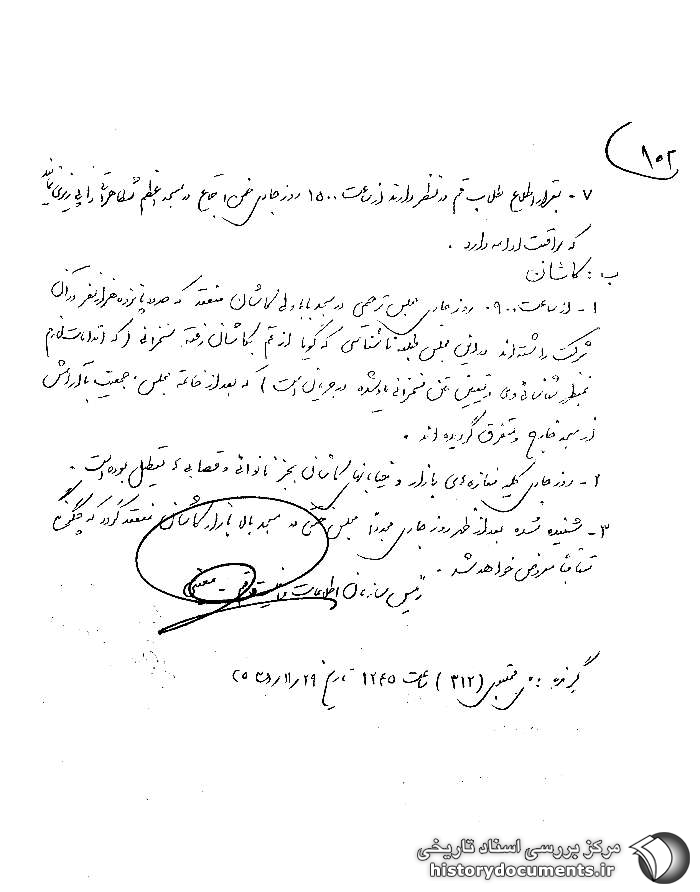 ۱۰۲
۷- بقرار اطلاع طلاب قم در نظر دارند از ساعت ۱۵۰۰ روز جاری ضمن اجتماع در مسجد اعظم تظاهراتی را پی ریزی نمایند
که مراقبت ادامه دارد .
ب : کاشان
۱- از ساعت ۰۹۰۰ روز جاری مجلس ترحیمی در مسجد بابا ولی کاشان منعقد که حدود پانزده هزار نفر در آن
شرکت داشته اند در این مجلس طلبه ناشناسی که گویا از قم بکاشان رفته سخنرانی ( که اقدامات لازم
بمنظور شناسائی وی و تعیین متن سخنرانی یاد شده در جریان است ) که بعد از خاتمه مجلس ، جمعیت به آرامش
از مسجد خارج و متفرق گردیده اند .
۲- روز جاری کلیه مغازه های بازار و خیابانهای کاشان بجز نانوائی و قصابی ها تعطیل بوده است .
۳- شنیده شده بعد از ظهر روز جاری مجددا مجلس ختمی در مسجد بالا بازار کاشان منعقد گردد که چگونگی
متعاقبا معروض خواهد شد .
رئیس سازمان اطلاعات و امنیت قم - معینی
گیرنده : (۳۱۲) ساعت ۱۲۴۵ تاریخ ۲۹
مرکز بررسی اسناد تاریخی
historydocuments.ir